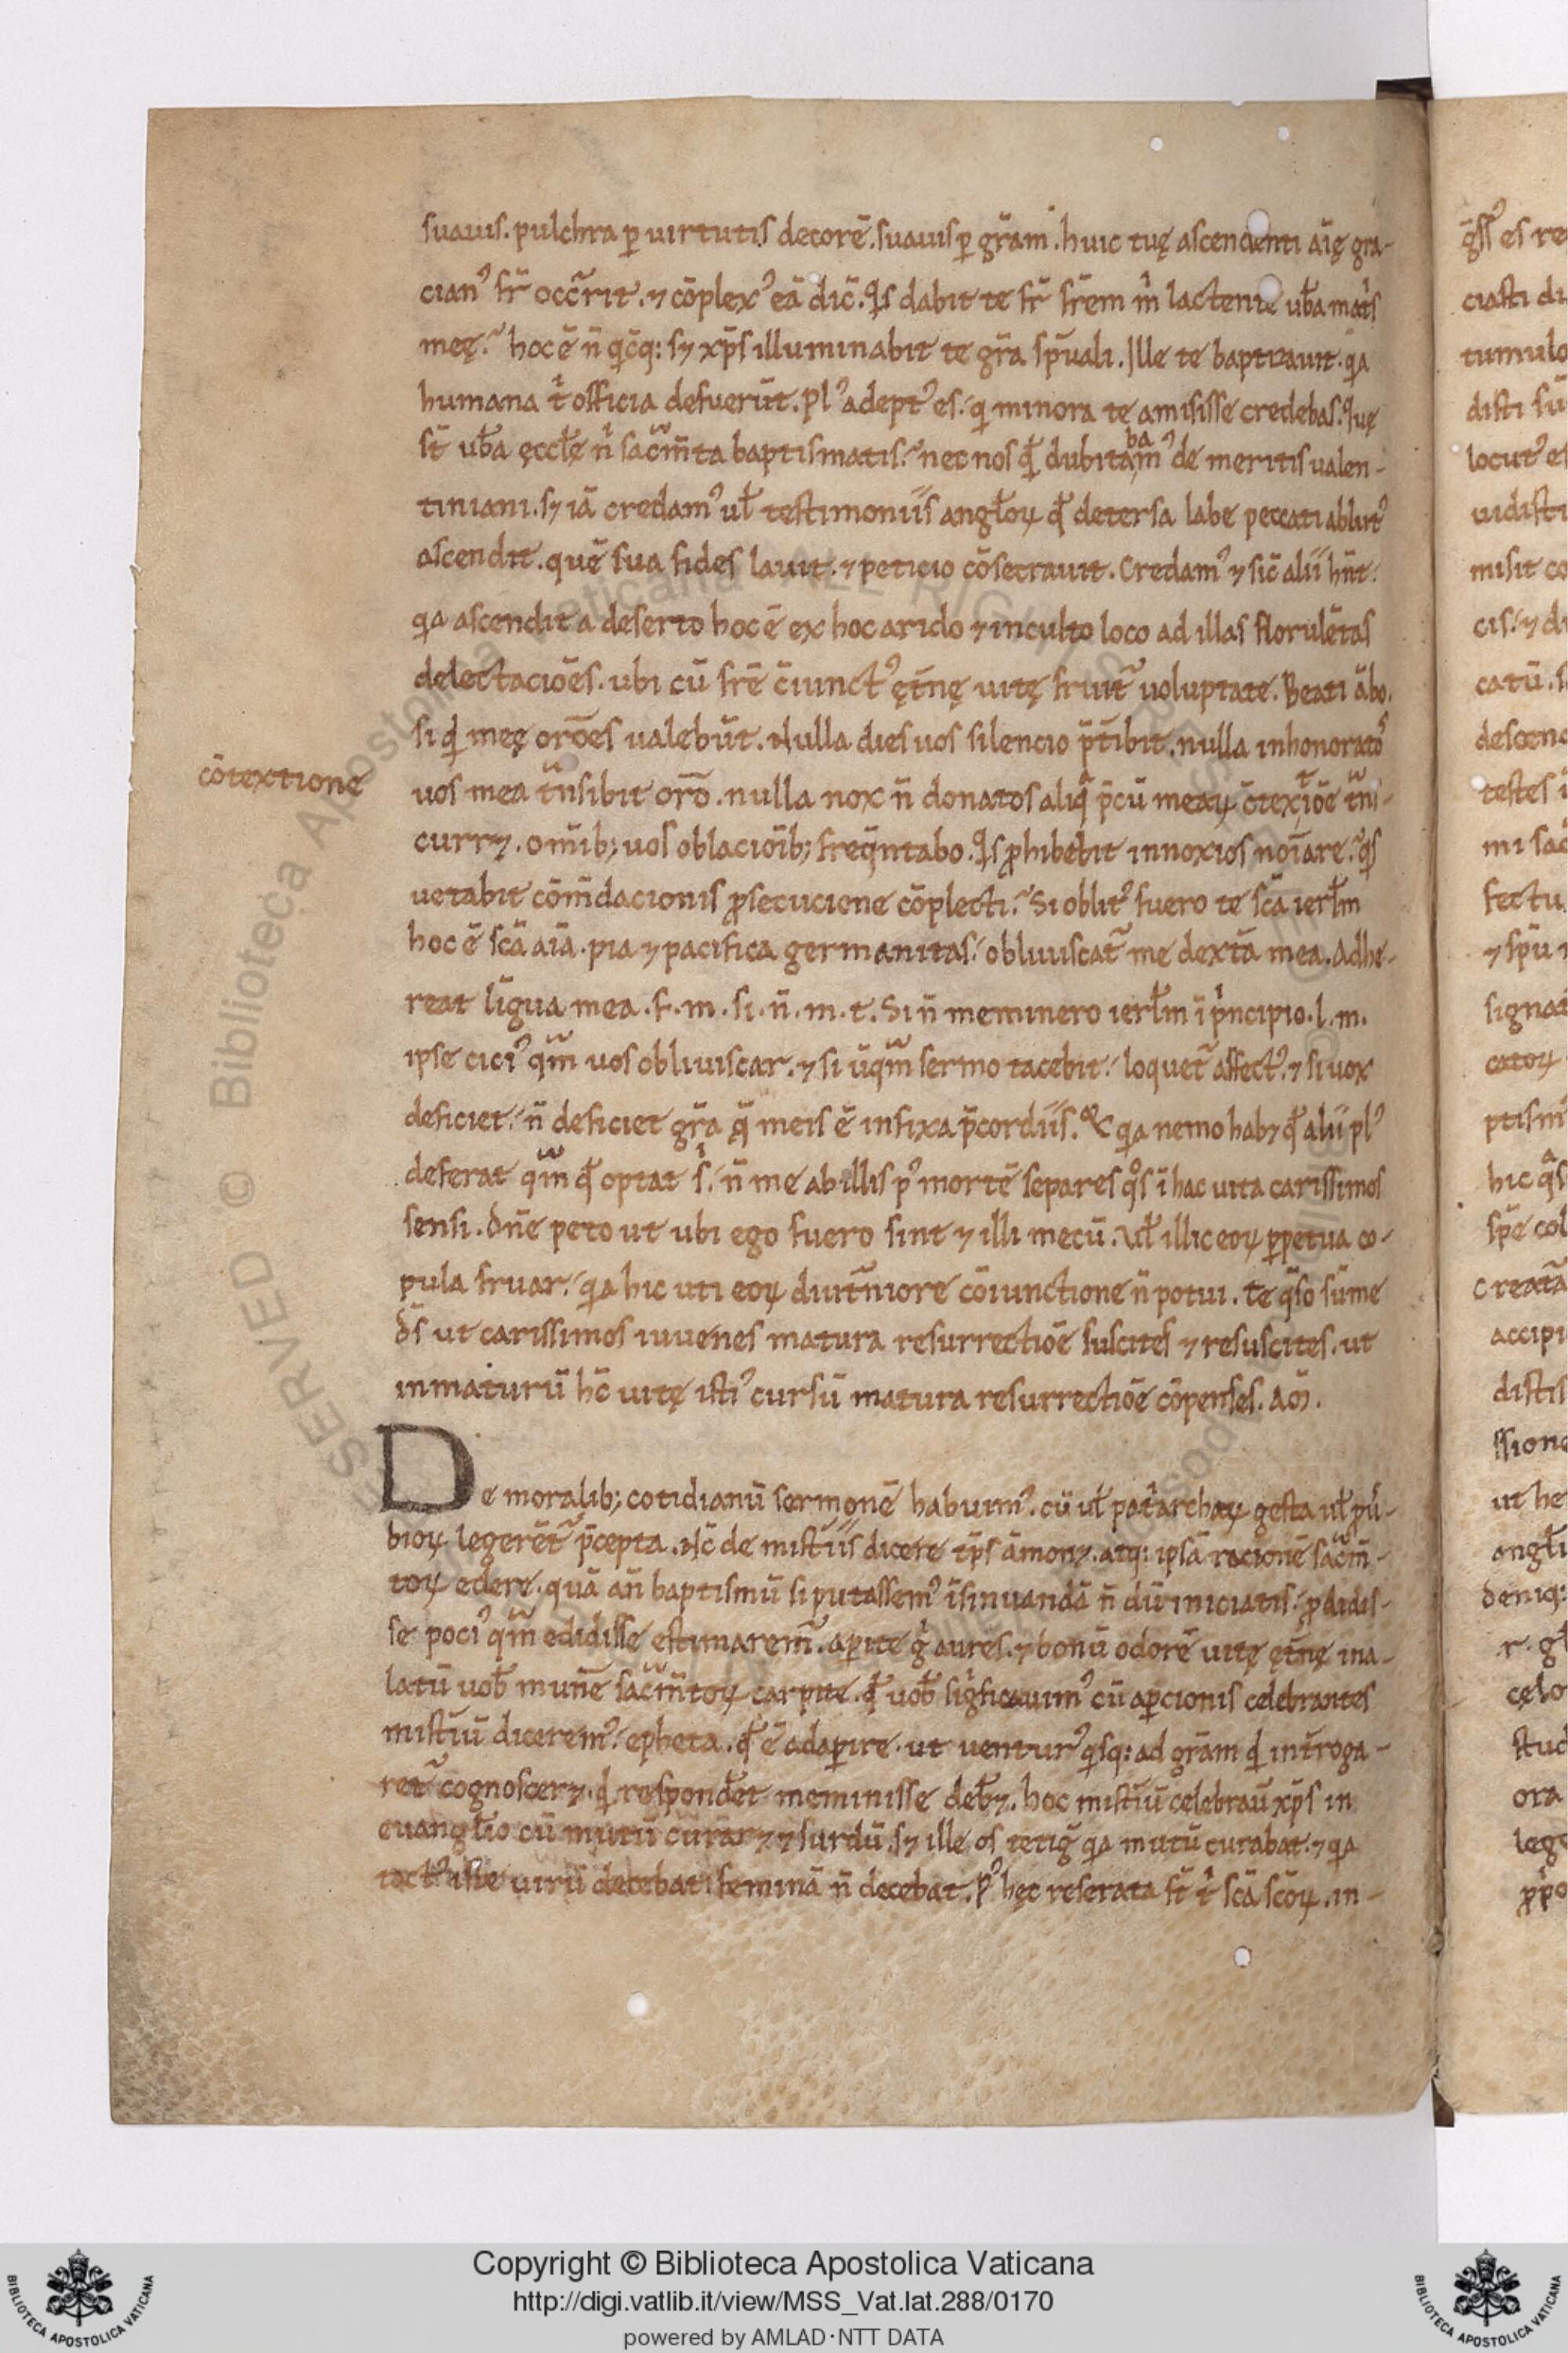 suauis. pulchra ꝑ uirtutis decorē. suauis ꝑ gr̄am. huic tuę ascendenti aīę gra-
cianꝰ fr̄ occ̄rit. ⁊ cōplexꝰ eā dic̄. q̇s dabit te fr̄ fr̄em m̊ lactente ub̄a mat̊s
meę. hoc ē n̄ q̊cq: sꝫ xp̄s illuminabit te gr̄a sp̄uali. Ille te baptizauit. q̊a
humana t̊ officia defuerūt. Plꝰ adeptꝰ es. q̊ minora te amisisse credebas. Quę
st̄ ub̄a ęccl̄ę n̊ sac̄m̄ta baptismatis. nec nos qđ dubitabamꝰ de meritis ualen-
tiniani. sꝫ iā credamꝰ ul̄ testimoniis angl̄oꝝ qđ detersa labe peccati ablutꝰ
ascendit. quē sua fides lauit. ⁊ peticio cōsecrauit. Credamꝰ ⁊ sic̄ alii hn̄t.
q̊a ascendit a deserto hoc ē ex hoc arido ⁊ inculto loco ad illas florulētas
delectaciōes. ubi cū fr̄e c̄iunctꝰ ęt̄nę uitę fruit᷑ uoluptate. Beati ābo.
si q̊d meę orōes ualebūt. Nulla dies uos silencio p̄t̄ibit. nulla inhonoratos
cōtextione
uos mea t̄nsibit orō. nulla nox n̄ donatos aliq̊ p̄cū meaꝝ c̄textiōe t̄n-
currꝫ. omīb; uos oblacioīb; freq̄ntabo. q̇s ꝓhibebit innoxios noīare. q̊s
uetabit cōm̄dacionis ꝓsecucione cōplecti. Si oblitꝰ fuero te scā ierl̄m
hoc ē scā aīā. pia ⁊ pacifica germanitas. obliuiscat᷑ me dext̄a mea. Adhe-
reat līgua mea. f. m. si. n̄. m. t. Si n̄ meminero ierl̄m ī p̊ncipio. l. m.
ipse ciciꝰ q̄m uos obliuiscar. ⁊ si ūq̄m sermo tacebit. loquet᷑ affectꝰ. ⁊ si uox
deficiet. n̄ deficiet gr̄a q̄ meis ē infixa p̄cordiis. & q̊a nemo habꝫ qđ alii plꝰ
deferat q̄m qđ optat s̊. n̄ me ab illis pꝰ mortē separes q̊s ī hac uita carissimos
sensi. dn̄e peto ut ubi ego fuero sint ⁊ illi mecū. Vl̄ illic eoꝝ ꝑpetua co-
pula fruar. q̊a hic uti eoꝝ diut̄niore cōiunctione n̄ potui. te q̄so sūme
d̄s ut carissimos iuuenes matura resurrectiōe suscites ⁊ resuscites. ut
inmaturū hc̄ uitę istiꝰ cursū matura resurrectiōe cōpenses. Am̄.
De moralib; cotidianū sermonē habuimꝰ. cū ul̄ pat̊archaꝝ gesta ul̄ pū-
bioꝝ legerēt᷑ p̄cepta. Nc̄ de mist̄iis dicere tp̄s āmonꝫ. atq: ipsā racionē sac̄m̄-
toꝝ edere. quā an̄ baptismū si putassemꝰ īsinuandā n̄ dū iniciatis. ꝓdidis-
se pociꝰ q̄m edidisse estimarem᷑. aꝑite g̊ aures. ⁊ bonū odorē uitę ęt̄nę ina-
latū uob̄ mun̄e sac̄m̄toꝝ carpite. qđ uob̄ sig̊ficauimꝰ cū aꝑcionis celebrantes
mist̄iū diceremꝰ. epheta. qđ ē adaꝑire. ut uenturꝰ q̊sq: ad gr̄am q̊d int̄roga-
ret᷑ cognoscerꝫ. q̊d respond̄et meminisse deb̄ꝫ. hoc mist̄iū celebrau̅ xp̄s in
euangl̄io cū mutū curarꝫ ⁊ surdū. sꝫ ille os tetig̃ q̊a mutū curabat. ⁊ q̊a
uirū decebat. feminā n̄ decebat. Pꝰ hęc reserata st̄ t̊ scā scōꝝ. in-
Copyright © Biblioteca Apostolica Vaticana
http://digi.vatlib.it/view/MSS_Vat.lat.288/0170
powered by AMLAD·NTT DATA